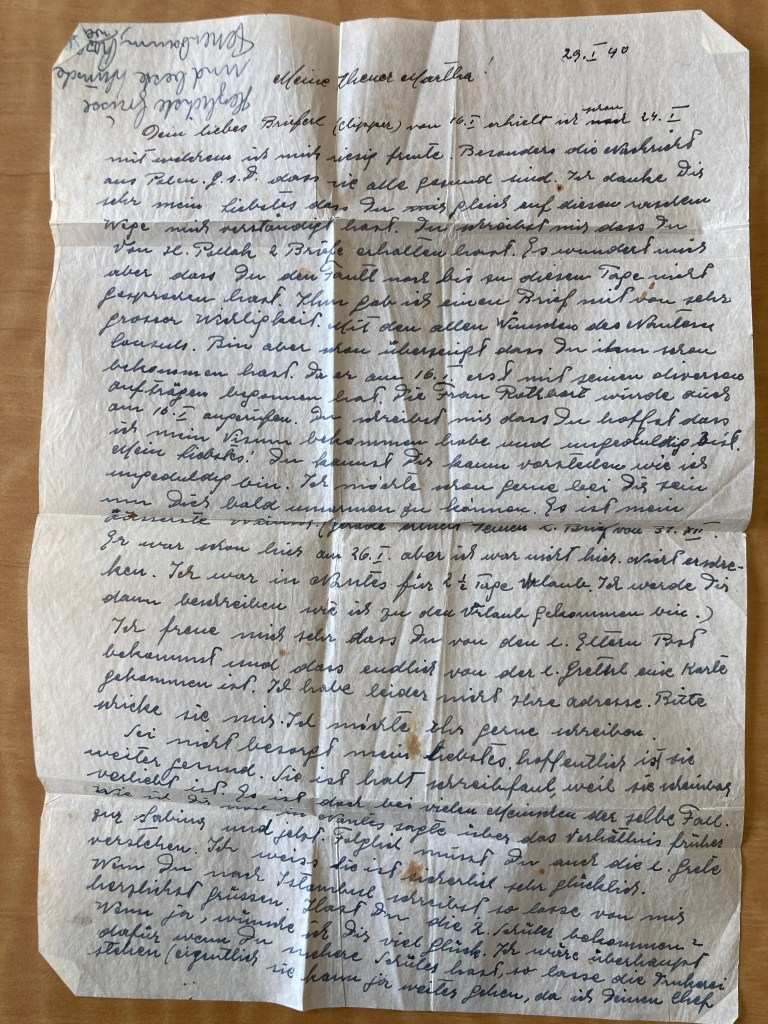 29. I 40
Meine theuer Martha!
Dein liebes Brieferl (Clipper) von 16. I erhielt ich schon 24. I
mit welchem ich mich riesig freute. Besonders die Nachricht
aus Polen. G. s. D. dass sie alle gesund sind. Ich danke Dir
sehr mein Liebstes dass Du mir gleich auf diesen
Wege mich verständigt hast. Du schreibst mir dass Du
von H. Pollak 2 Briefe erhalten hast. Es wundert mich
aber dass Du den noch bis zu diesen Tage nicht
gesprochen hast. Ihm gab ich einen Brief mit von sehr
grosser Wichtigkeit. Mit den allen Wünschen des
Consuls. Bin aber schon überzeugt dass Du ihm schon
bekommen hast. Da er am 16. I erst mit seinen diversen
Aufträgen begonnen hat. Die Frau Rothbart wurde auch
am 16. I angerufen. Du schreibst mir dass Du hoffst dass
ich mein Visum bekommen habe und ungeduldig bist.
Mein liebstes! Du kannst Dir kaum vorstellen wie ich
ungeduldig bin. Ich möchte schon gerne bei Dir sein
um Dich bald umarmen zu können. Es ist mein
äusserste Wunsch (gerade Deinen l. Brief von 31. XII.
Er war schon hier am 26. I. aber ich war nicht hier. Nicht erschre-
ken. Ich war in Nantes für 2 ½ Tage Urlaub. Ich werde Dir
dann beschreiben wie ich zu den Urlaub gekommen bin.)
Ich freue mich sehr dass Du von den l. Eltern Post
bekommst und dass endlich von der l. Gretel eine Karte
gekommen ist. Ich habe leider nicht Ihre Adresse. Bitte
schicke sie mir. Ich möchte Ihr gerne schreiben.
Sei nicht besorgt mein Liebstes, hoffentlich ist sie
weiter gesund. Sie ist halt schreibfaul, weil sie scheinbar
verliebt ist. Es ist doch bei vielen Menschen der selbe Fall.
Wie ich Dir noch in Nantes sagte über das Verhältnis früher
zur Sabina und jetzt. Folglich musst Du auch die l. Grete
verstehen. Ich weiss sie ist sicherlich sehr glücklich.
Wenn Du nach Istambul schreibst so lasse von mir
herzlichst grüssen. Hast Du die 2. Schüler bekommen?
Wenn ja, wünsche ich Dir viel Glück. Ich wäre überhaupt
dafür wenn Du mehere Schüler hast, so lasse die
stehen (eigentlich sie kann ja weiter gehen, da ich Deinen Chef
Herzlichste Grüsse
und beste